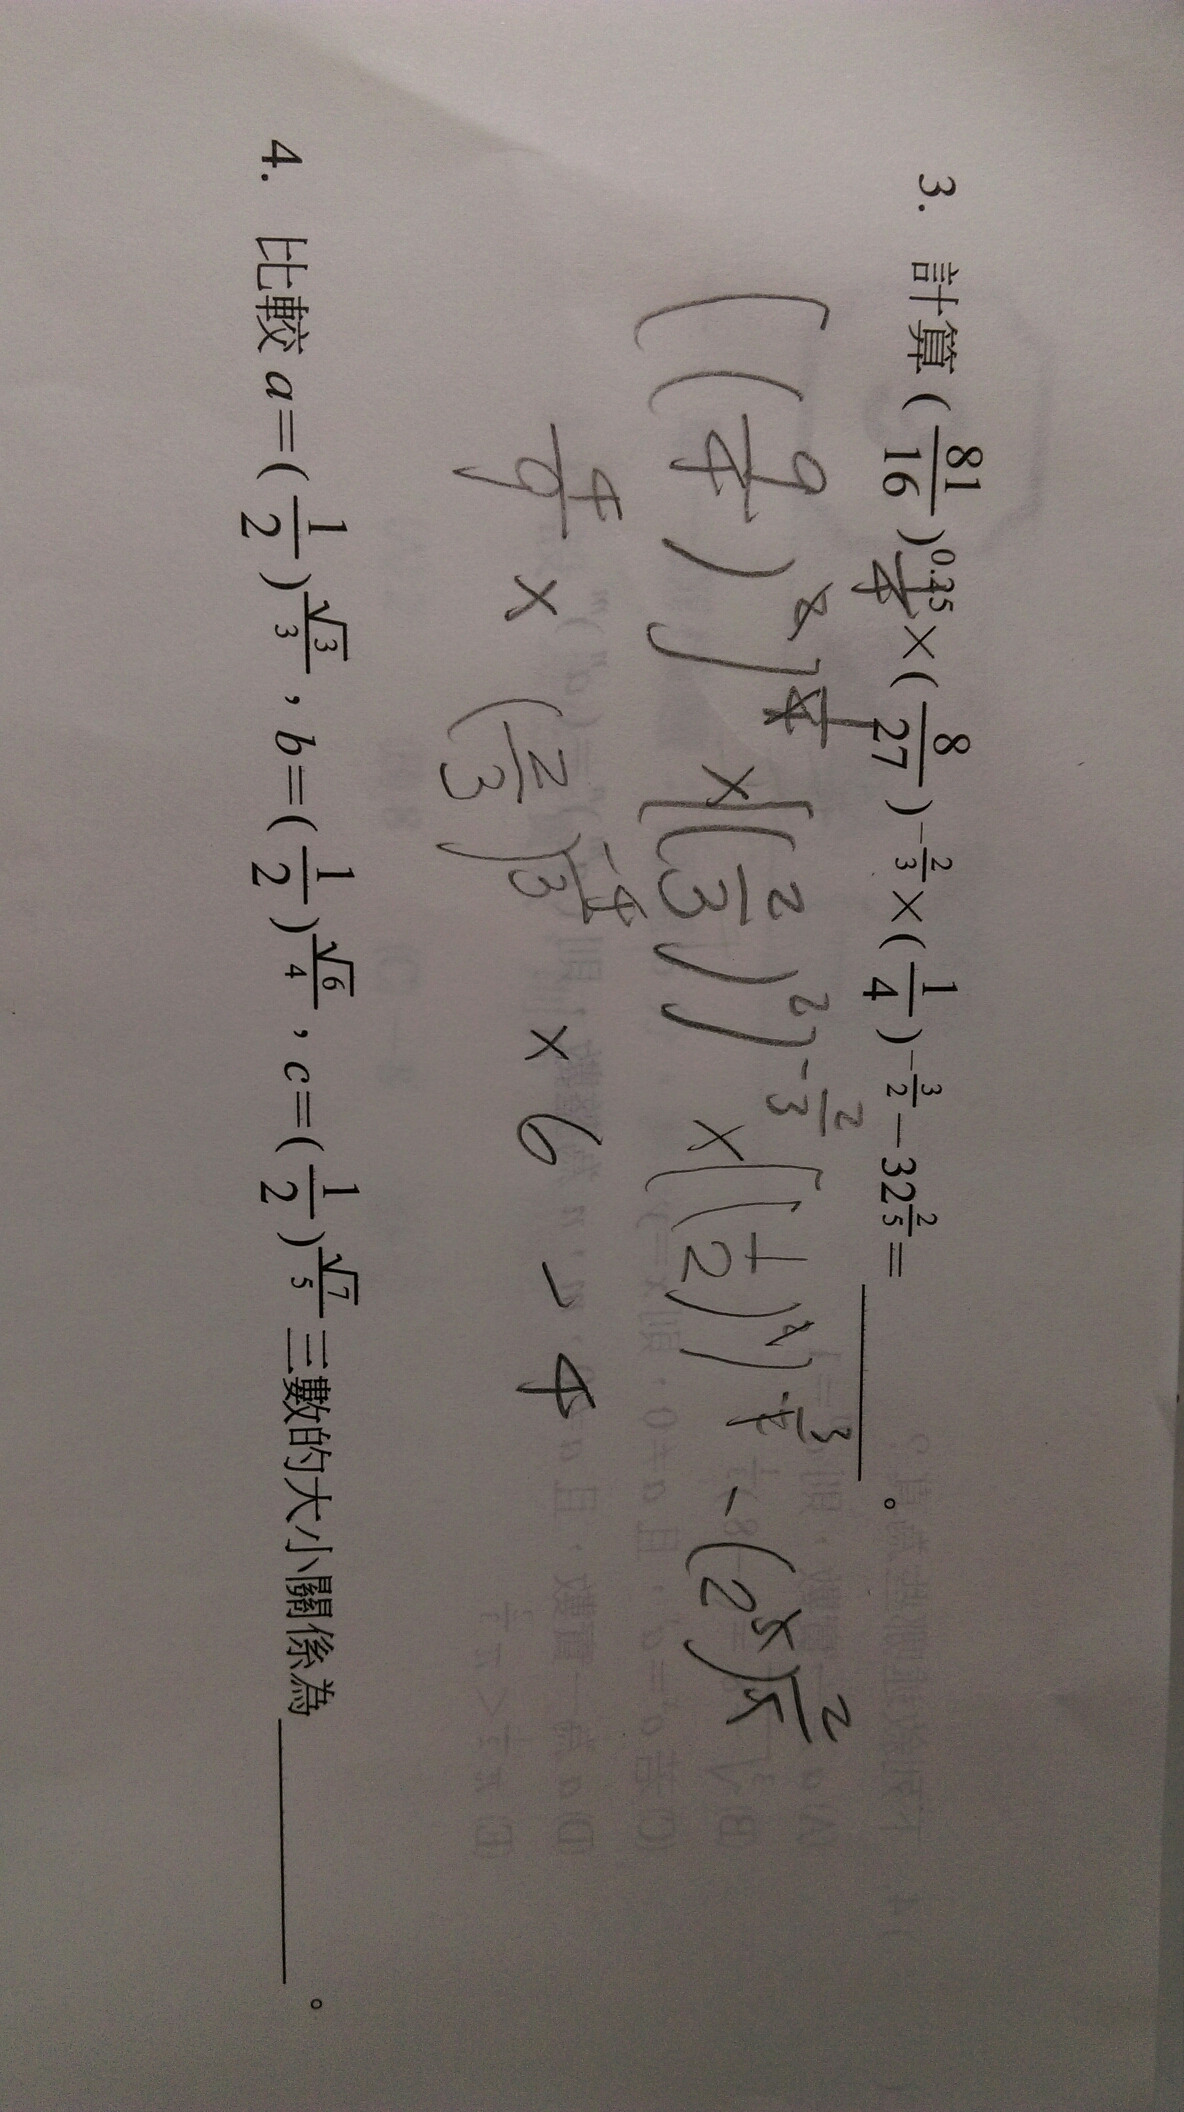 3. 計算 (81/16)^0.25 × (8/27)^-2/3 × (1/4)^-3/2 − 32^2/5 = ________。
1/4
((9/4)^2)^1/4 × [(2/3)^2]^-2/3 × [(1/2)^2]^-3/2 - (2^5)^2/5
4/9 × (2/3)^-4/3 × 6 - 4
4. 比較 a=(1/2)^√3/3，b=(1/2)^√6/4，c=(1/2)^√7/5 三數的大小關係為________。